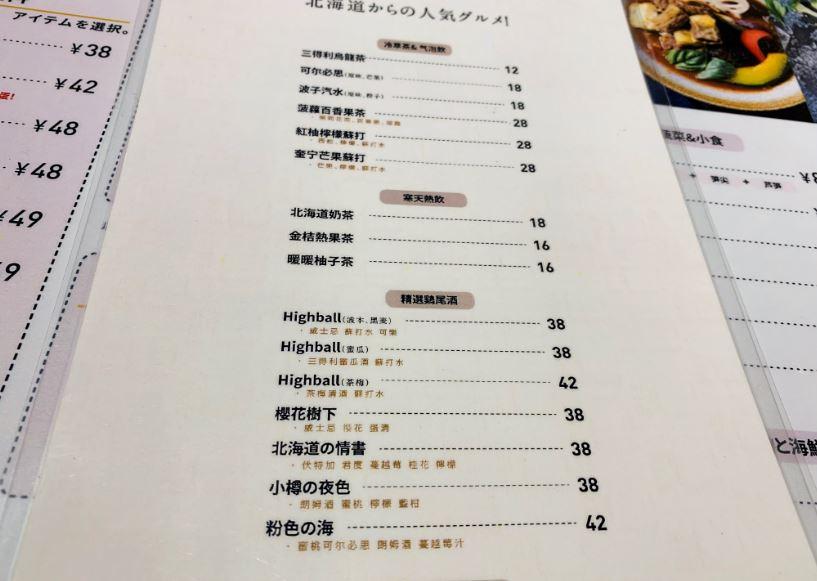 アイテムを選択。
¥38
¥42
¥48
¥48
¥49
北海道からの人気グルメ!
冷萃茶&气泡飲
三得利烏龍茶 12
可尔必思(原味、芒果) 18
波子汽水(原味、柚子) 18
菠蘿百香果茶 28
紅柚檸檬蘇打 28
· 西柚、檸檬、蘇打水
奎宁芒果蘇打 28
· 芒果、檸檬、蘇打水
寒天熱飲
北海道奶茶 18
金桔熱果茶 16
暖暖柚子茶 16
精選鷄尾酒
Highball(波本、黑麦) 38
· 威士忌 蘇打水 可樂
Highball(蜜瓜) 38
· 三得利蜜瓜酒 蘇打水
Highball(茶梅) 42
· 茶梅清酒 蘇打水
櫻花樹下 38
· 威士忌 櫻花 盛清
北海道の情書 38
· 伏特加 君度 蔓越莓 桂花 檸檬
小樽の夜色 38
· 朗姆酒 蜜桃 檸檬 藍柑
粉色の海 42
· 蜜桃可尔必思 朗姆酒 蔓越莓汁
蔬菜&小食
+ 笋尖 + 芦笋
と海鮮